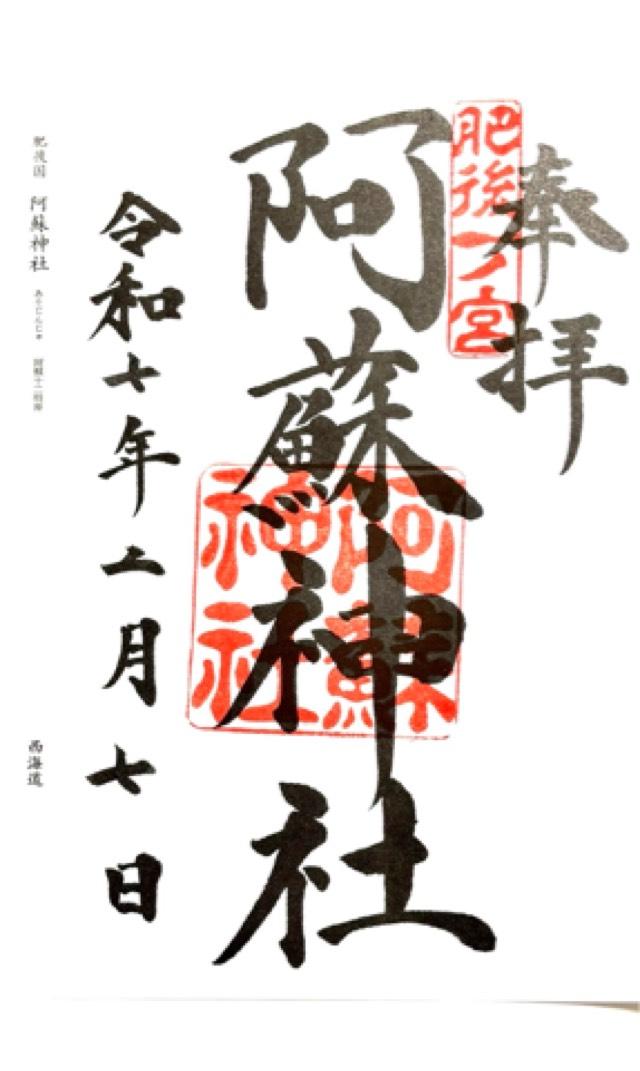 奉拝
肥後一宮
阿蘇神社
阿蘇
神社
令和七年二月七日
肥後国 阿蘇神社 あそじんじゃ
西海道